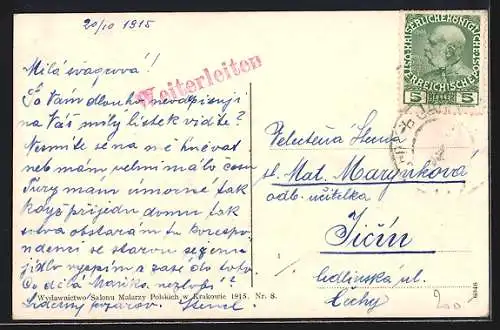 20/10 1915
Milá švagrová!
Weiterleiten
To Vám dlouho neodpisuji
na Váš milý lístek viďte?
Nesmíte se na mě hněvat
neb mám velmi málo času
Tury mam úmorné tak
když přijedu domu tak
sotva obstarám tu korespon
denci se starou sežeru
jídlo vyspím a zase do toho
Co dělá Mařka nezlobí?
Srdečný pozdrav
Wydawnictwo Salonu Malarzy Polskich w Krakowie 1915. Nr. 8.
KAISERLICHE KÖNIGLICHE
ÖSTERREICHISCHE POST
5 HELLER 5
Velectěná Slečna
sl. Mat. Marynková
odb. učitelka
Jičín
Cidlinská ul.
Čechy